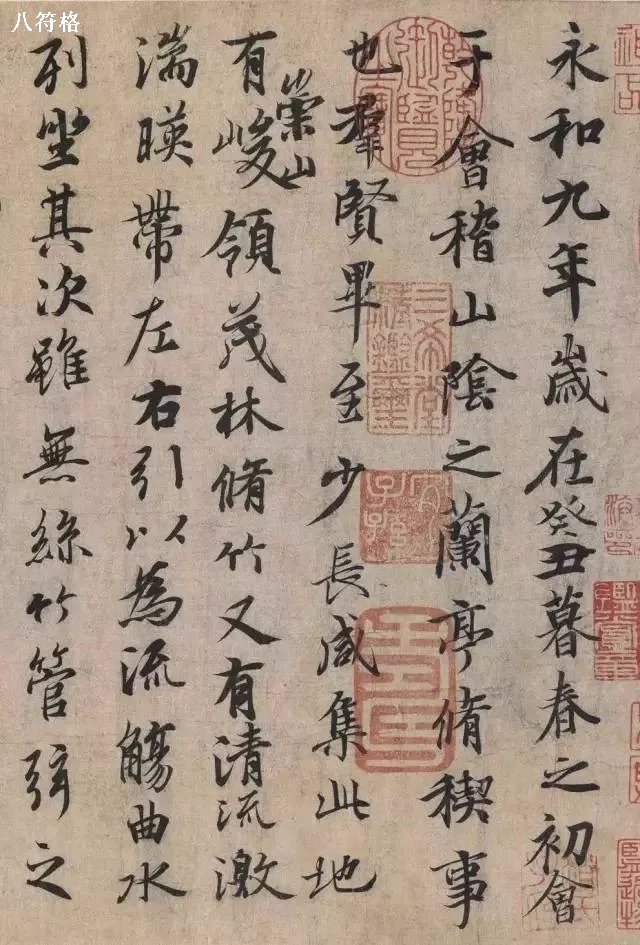 八符格
永和九年歲在癸丑暮春之初會
于會稽山陰之蘭亭脩稧事
也羣賢畢至少長咸集此地
有崇山峻領茂林脩竹又有清流激
湍暎帶左右引以為流觴曲水
列坐其次雖無絲竹管弦之
三希堂精鑑璽